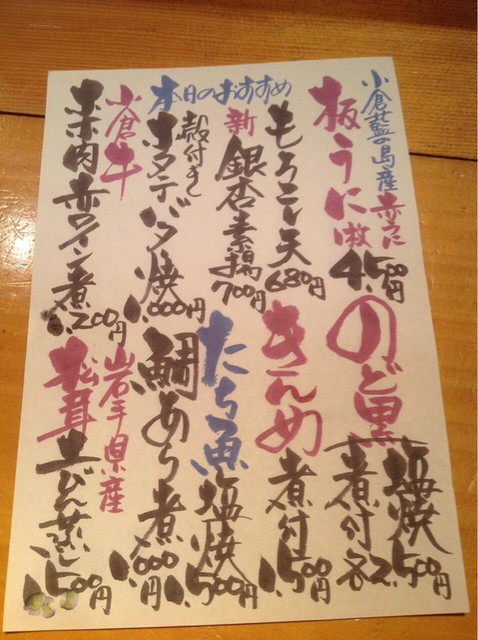 本日のおすすめ
小倉藍の島産赤うに
板うに1枚
4,500円
もろこし天
680円
新銀杏素揚
700円
殻付きホタテバター焼
1,000円
小倉牛
赤肉赤ワイン煮
1,200円
のど黒
塩焼
煮付
各2,500円
きんめ
煮付
1,500円
たち魚
塩焼
1,500円
鯛あら煮
1,000円
岩手県産
松茸土びん蒸し
1,500円